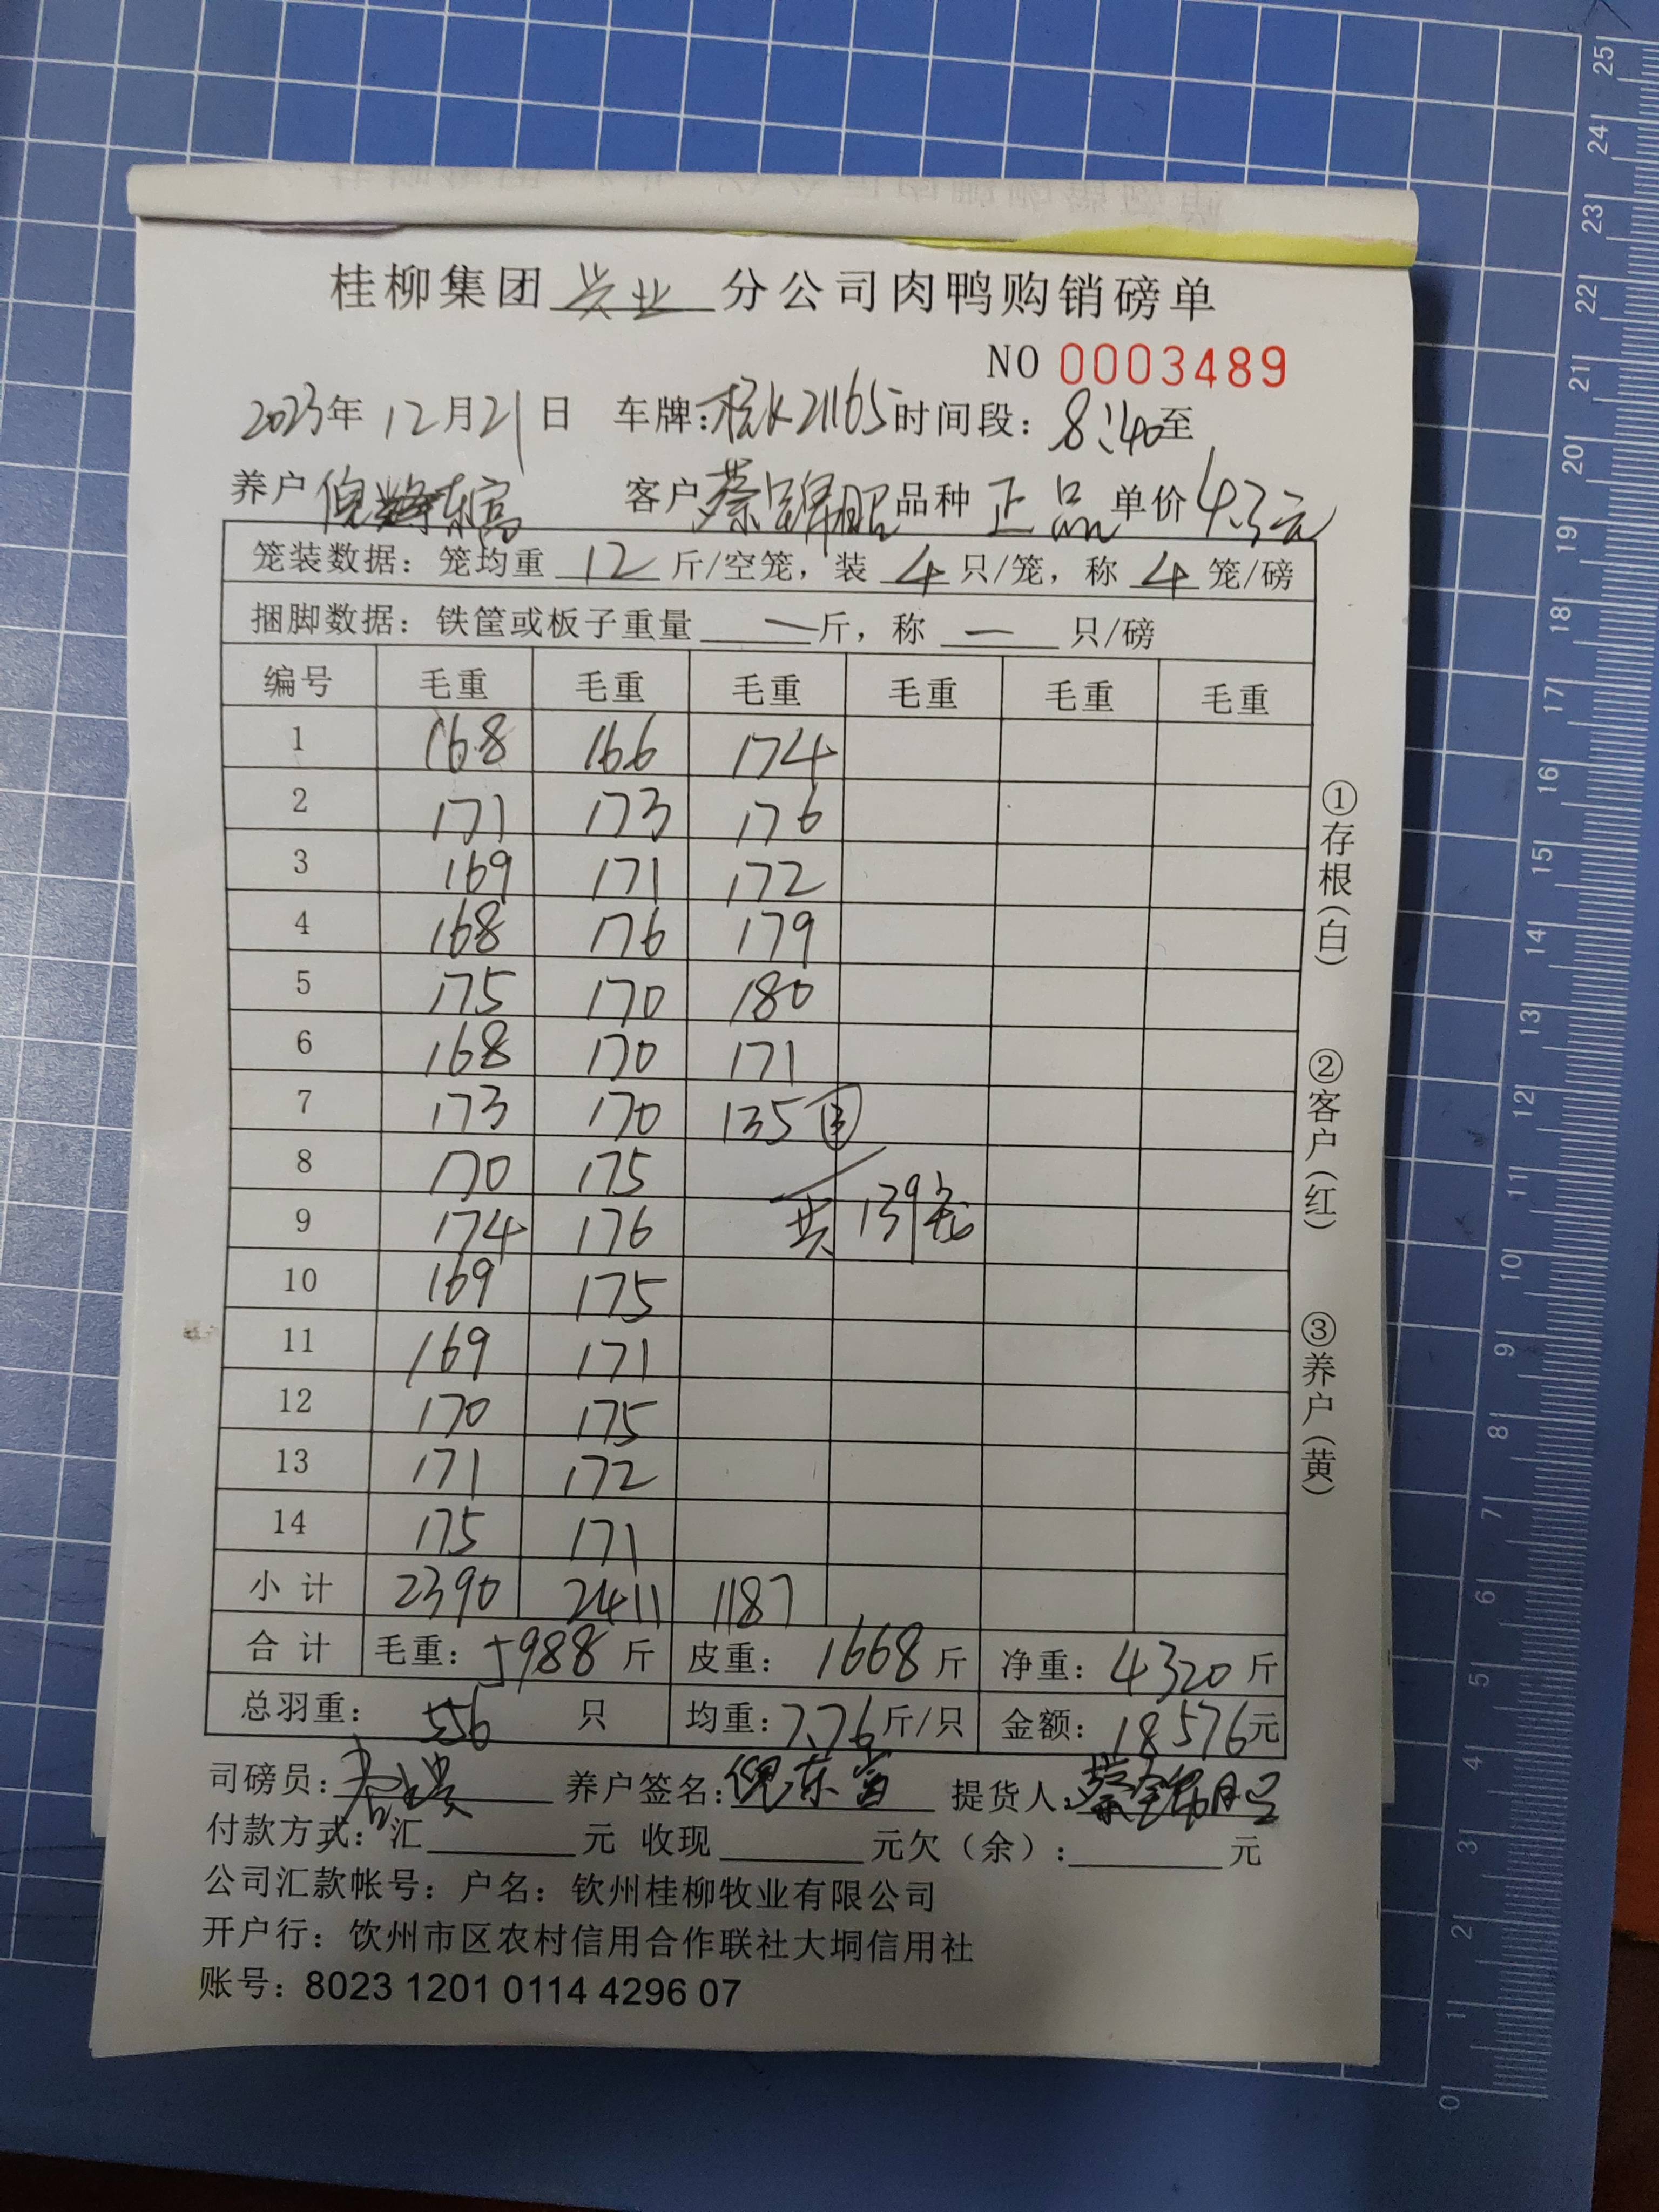 桂柳集团 兴业 分公司肉鸭购销磅单
NO 0003489
2023年 12月21日 车牌:桂K21165 时间段: 8:40至
养户 倪东富 客户 蔡锦昭 品种 正品 单价 4.3元
笼装数据: 笼均重 12 斤/空笼, 装 4 只/笼, 称 4 笼/磅
捆脚数据: 铁筐或板子重量 一 斤, 称 一 只/磅
编号 毛重 毛重 毛重 毛重 毛重 毛重
1 168 166 174
2 171 173 176
3 169 171 172
4 168 176 179
5 175 170 180
6 168 170 171
7 173 170 135 ③
8 170 175
9 174 176 共 139笼
10 169 175
11 169 171
12 170 175
13 171 172
14 175 171
小计 2390 2411 1187
合计 毛重: 5988 斤 皮重: 1668 斤 净重: 4320 斤
总羽重: 556 只 均重: 7.76 斤/只 金额: 18576元
司磅员: 养户签名: 倪东富 提货人: 蔡锦昭
付款方式: 汇 元 收现 元欠(余): 元
公司汇款帐号: 户名: 钦州桂柳牧业有限公司
开户行: 饮州市区农村信用合作联社大垌信用社
账号: 8023 1201 0114 4296 07
①存根(白) ②客户(红) ③养户(黄)
25
24
23
22
21
20
19
18
17
16
15
14
13
12
11
10
9
8
7
6
5
4
3
2
1
0